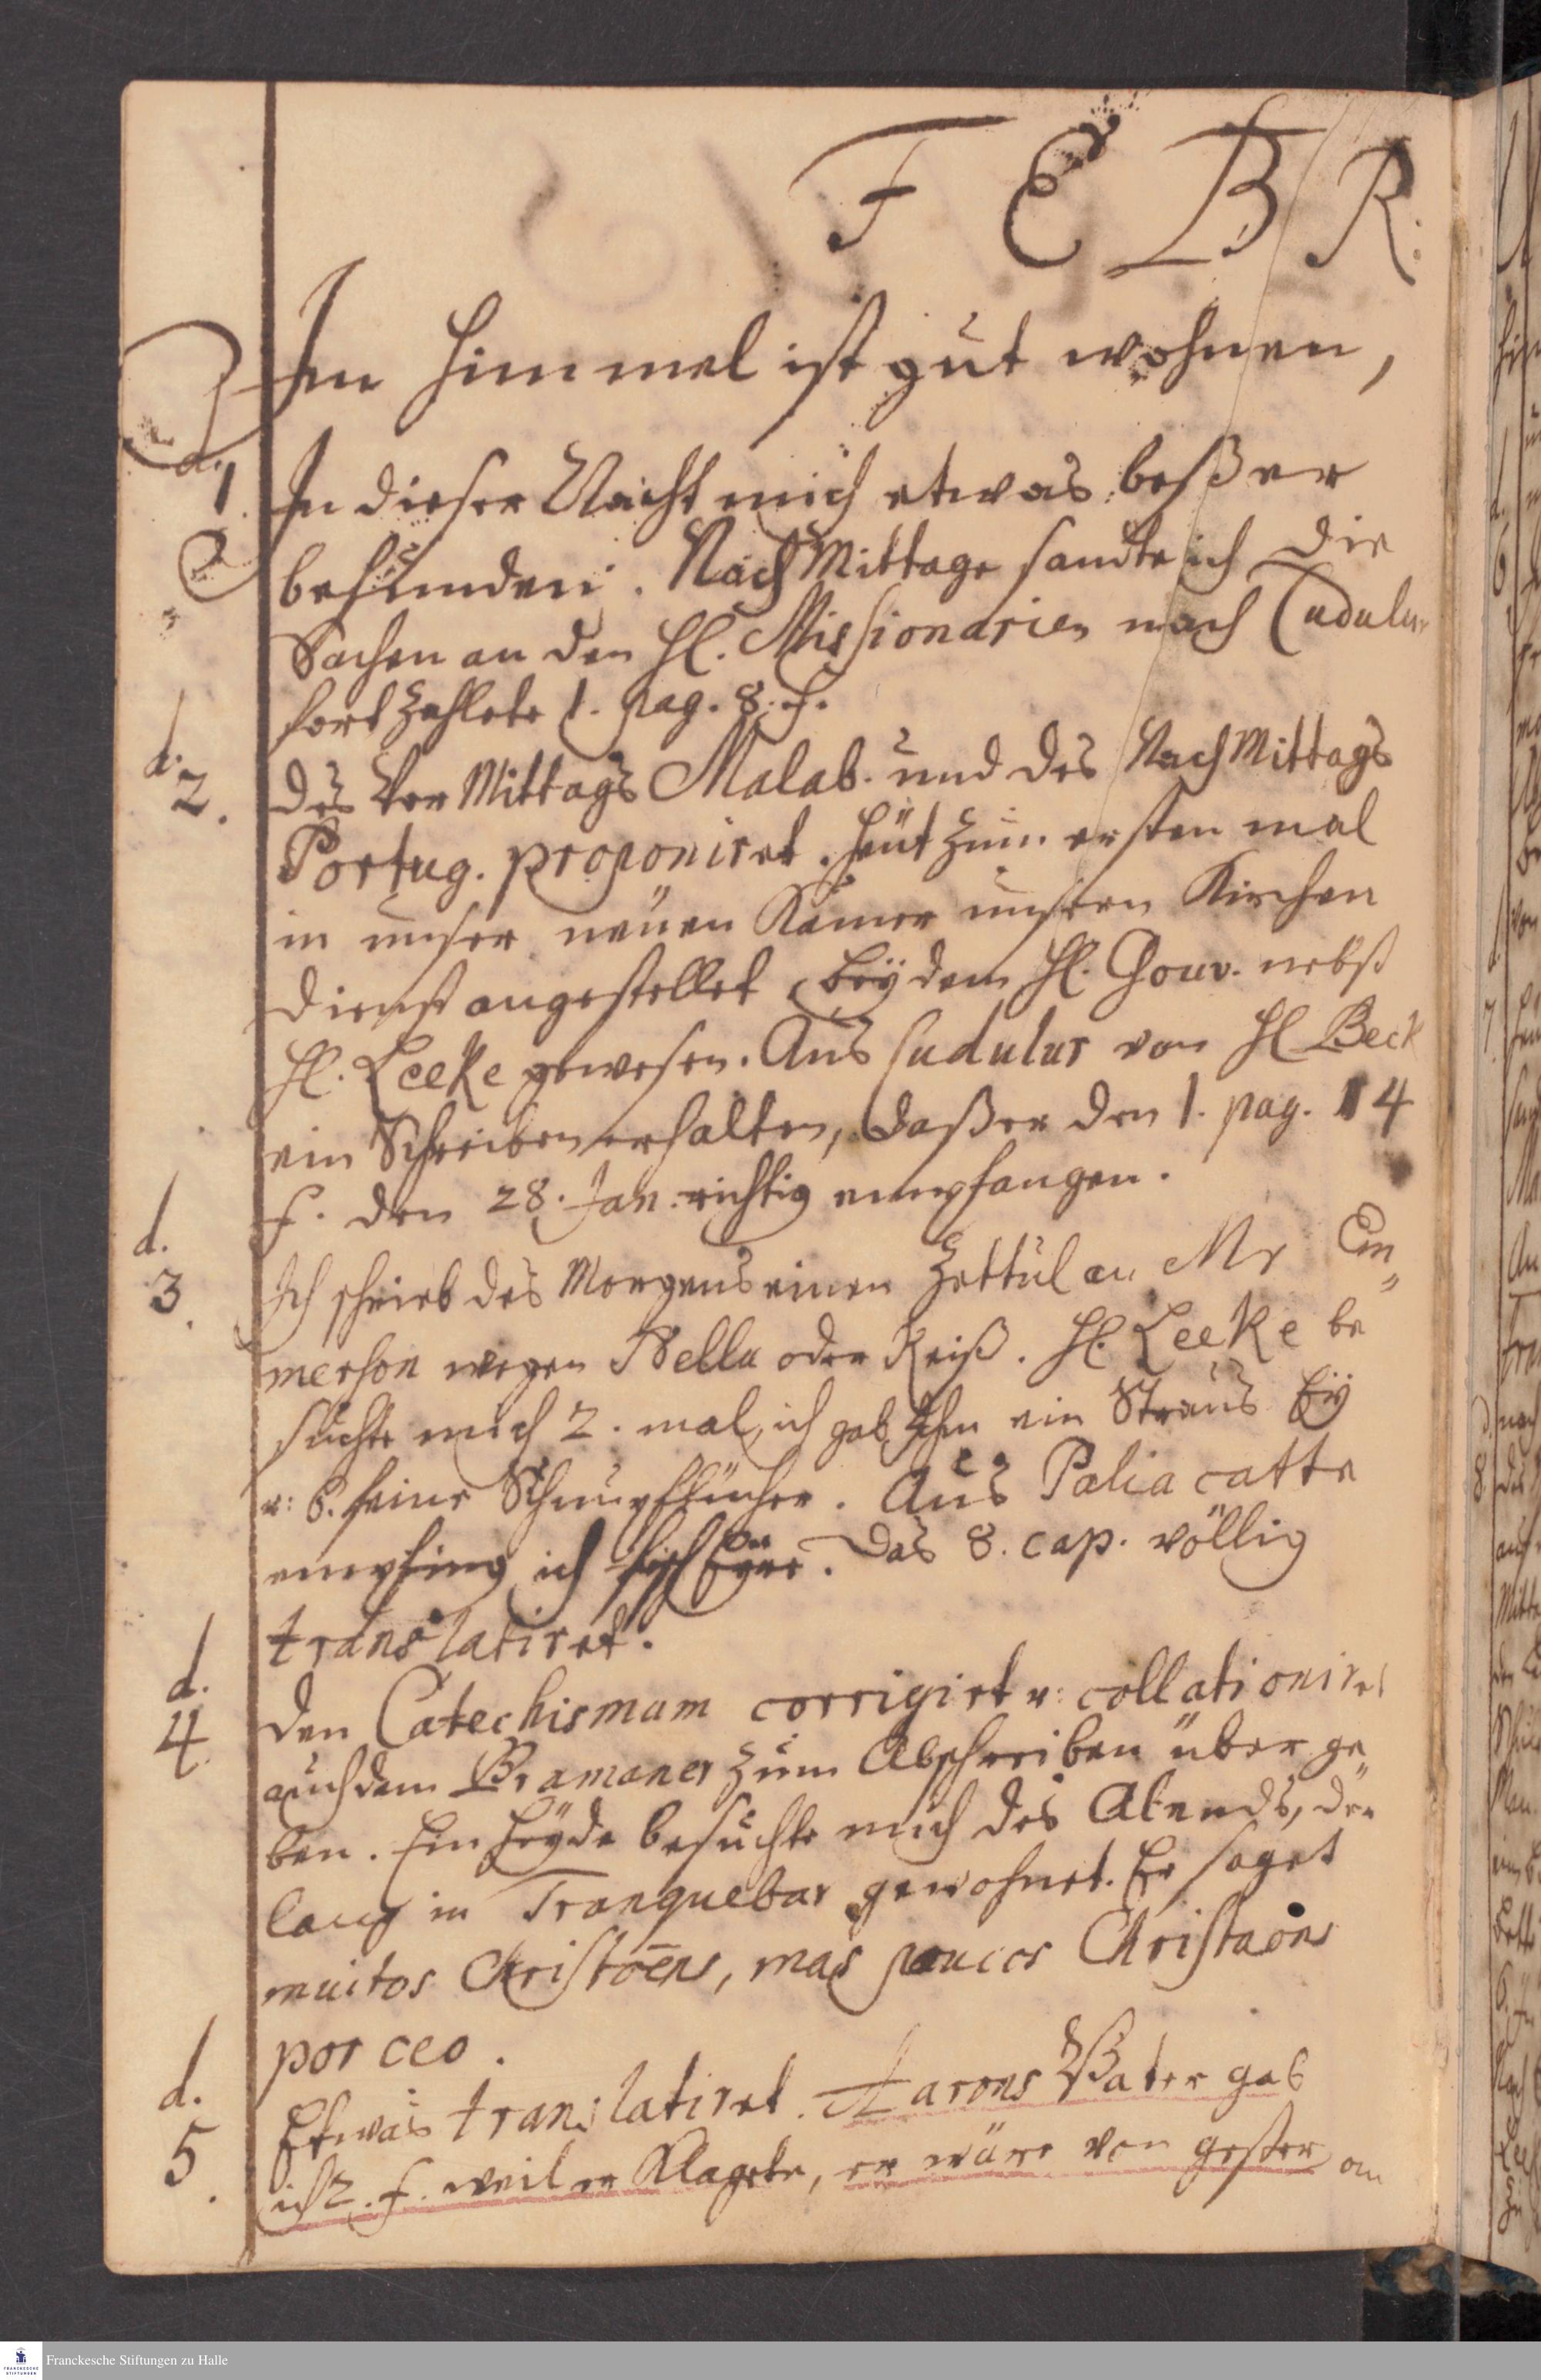 FEBR.
Im Himmel ist gut wohnen,
d. 1. In dieser Nacht mich etwas beßer
befunden. Nach Mittage sandte ich die
Sachen an den H. Missionarien nach Cudulur
fort zahlete 1. pag. 8. f.
d. 2. des Vor Mittags Malab. und des Nach Mittags
Portug. proponiret. Heut zum ersten mal
in unser neuen Kamer unsern Kirchen
dienst angestellet bey dem H. Gouv. nebst
H. Leeke gewesen. Aus Cudulur von H Beck
ein Schreiben erhalten, daß er den 1. pag. 14
f. den 28. Jan. richtig empfangen.
d. 3. Ich schrieb des Morgens einen Zettul an Mr Em
merson wegen Nellu oder Reiß. H. Leeke be
suchte mich 2. mal, ich gab Ihm ein Straus Ey
u: 6. feine Schnupftücher. Aus Paliacatte
empfing ich . Das 8. cap. völlig
translatiret.
d. 4. den Catechismum corrigirt u: collationiret
auch dem Bramaner zum Abschreiben überge
ben. Ein Heyde besuchte mich des Abends, der
lang in Tranquebar gewohnet. Er saget
muitos Christoens, mas poucos Christaons
por ceo.
d. 5. Etwas translatiret. Aarons Vater gab
ich 2. f. weil er klagete, er wäre von gester an
Franckesche Stiftungen zu Halle